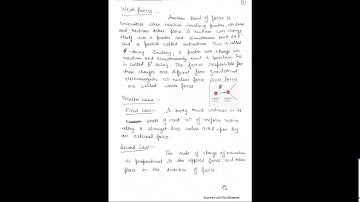 Weak forces :-
Another kind of force is
encountered when reaction involving protons, electrons
and neutrons takes place. A neutron can change
itself into a proton and simultaneously emit an e⁻
and a particle called antineutrino. This is called
β⁻ decay. Similarly, a proton can change into
neutron and simultaneously emit a positron. This
is called β⁺ decay. The forces responsible for
these changes are different from gravitational,
electromagnetic or nuclear force. Such forces
are called weak forces.
Newton Laws :-
First Law :- A body must continue in its
state of rest or of uniform motion
along a straight line, unless acted upon by
an external force.
Second Law :-
The rate of change of momentum
is proportional to the applied force and takes
place in the direction of force.
Scanned with CamScanner